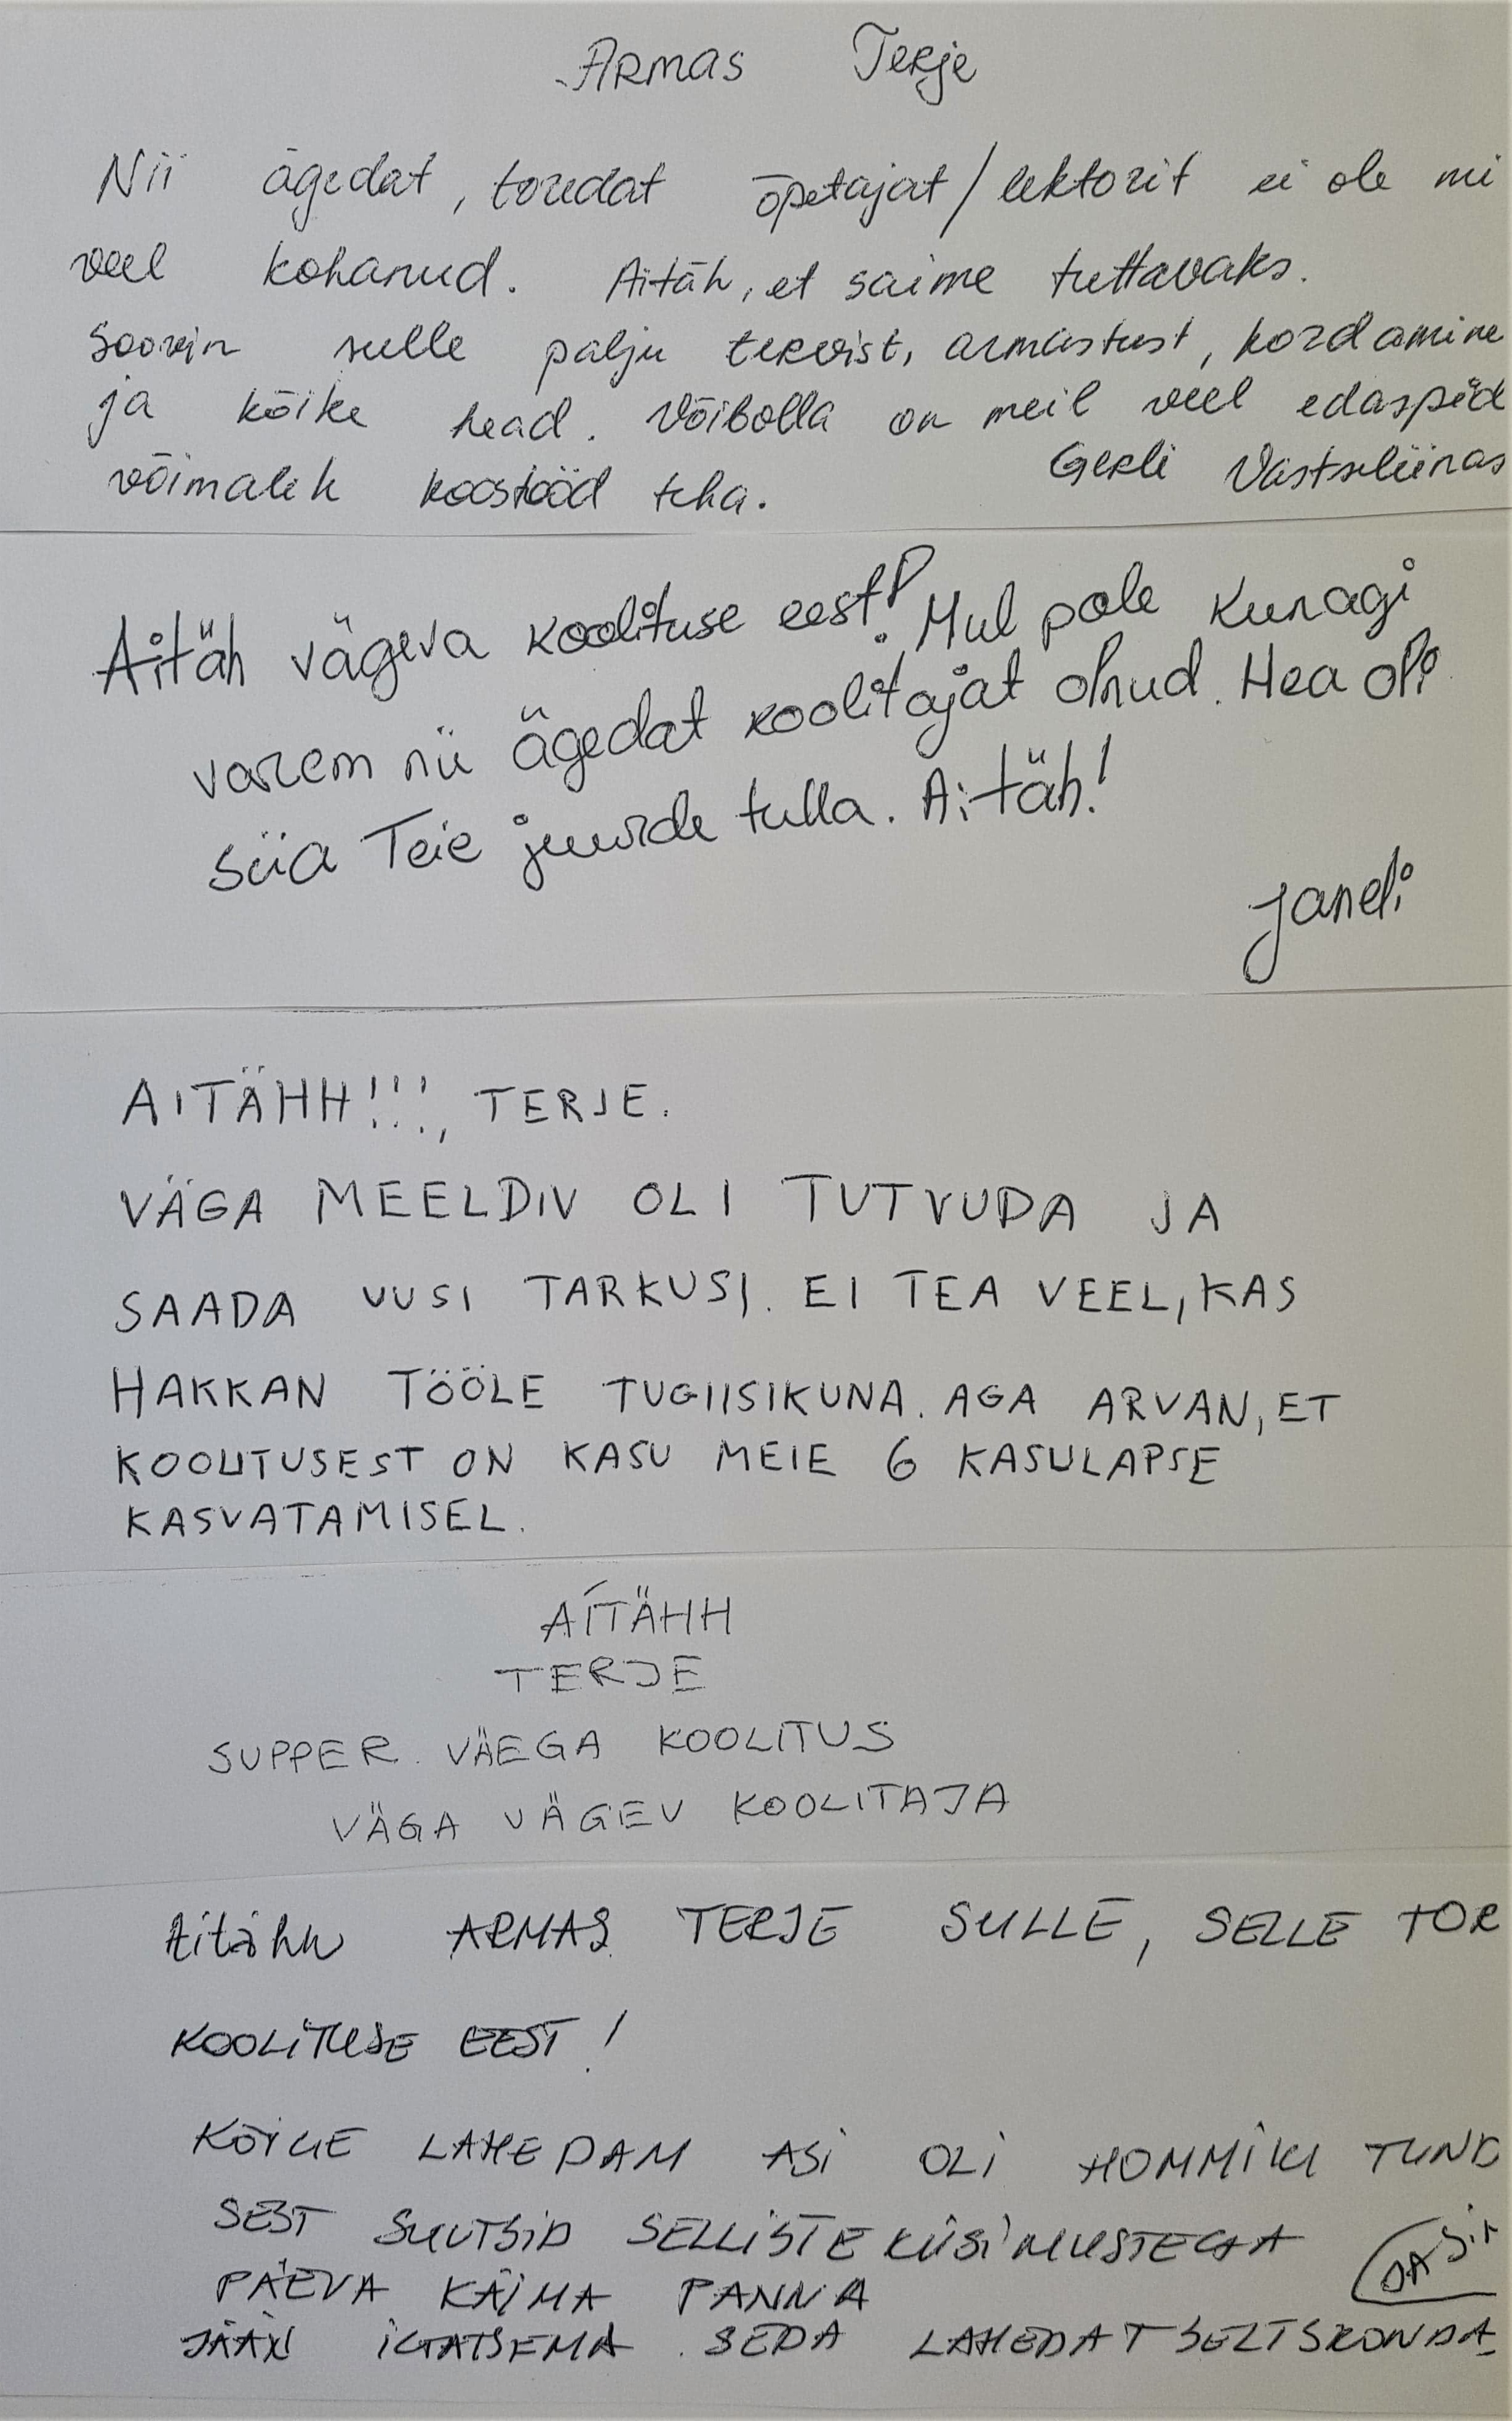 Armas Terje
Nii ägedat, toredat õpetajat/lektorit ei ole me
veel kohanud. Aitäh, et saime tuttavaks.
Soovin sulle palju tervist, armastust, kordamine
ja kõike head. Võibolla on meil veel edaspid
võimalik koostööd teha. Gerli Vastseliinas
Aitäh vägeva koolituse eest! Mul pole kunagi
varem nii ägedat koolitajat olnud. Hea oli
siia Teie juurde tulla. Aitäh!
Janeli
AITÄHH!!!, TERJE.
VÄGA MEELDIV OLI TUTVUDA JA
SAADA UUSI TARKUSI. EI TEA VEEL, KAS
HAKKAN TÖÖLE TUGIISIKUNA. AGA ARVAN, ET
KOOLITUSEST ON KASU MEIE 6 KASULAPSE
KASVATAMISEL.
AITÄHH
TERJE
SUPPER. VÄEGA KOOLITUS
VÄGA VÄGEV KOOLITAJA
Aitähh ARMAS TERJE SULLE, SELLE TOR
KOOLITUSE EEST!
KÕIGE LAHEDAM ASI OLI HOMMIKU TUND
SEST SUUTSID SELLISTE KÜSIMUSTEGA
PÄEVA KÄIMA PANNA
JÄÄN IGATSEMA SEDA LAHEDAT SELTSKONDA